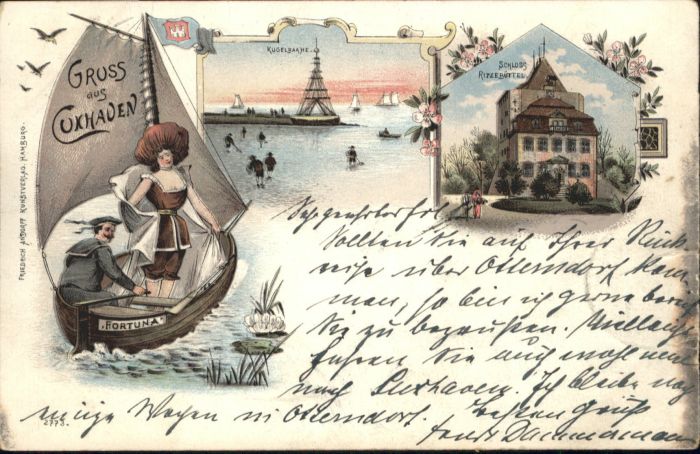 GRUSS
aus
CUXHAVEN
KUGELBAAKE.
SCHLOSS
RITZEBÜTTEL.
FRIEDRICH ASTHOLF KUNSTVERLAG, HAMBURG.
FORTUNA
Sollten Sie auf Ihrer Rück
reise über Otterndorf kom
men, so bin ich gerne bereit
Sie zu begrüßen. Vielleicht
fahren Sie auch wohl mal
nach Cuxhaven. Ich bleibe noch
einige Wochen in Otterndorf. Besten Gruß
2773.